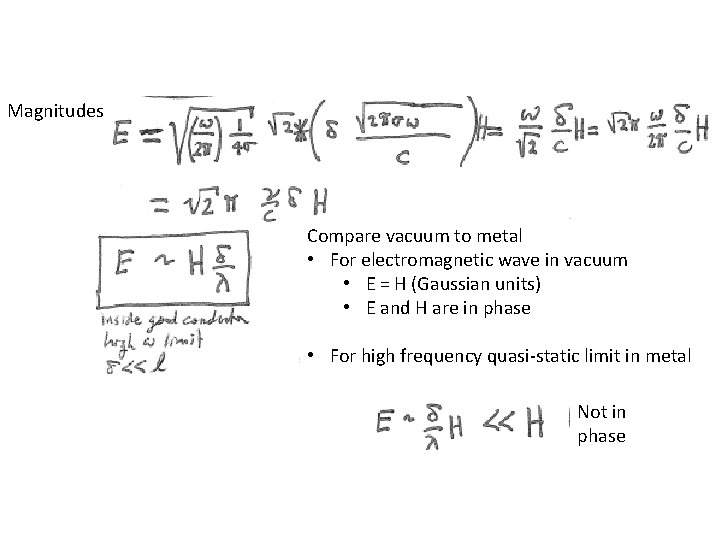 Magnitudes
E = √((ω/2π) 1/4σ) √2 (δ √(2πσω)/c) H = ω/√2 δ/c H = √2 π ω/2π δ/c H
= √2 π ν/c δ H
E ~ H δ/λ
Inside good conductor
high ω limit
δ << l
Compare vacuum to metal
• For electromagnetic wave in vacuum
• E = H (Gaussian units)
• E and H are in phase
• For high frequency quasi-static limit in metal
E ~ δ/λ H << H
Not in
phase